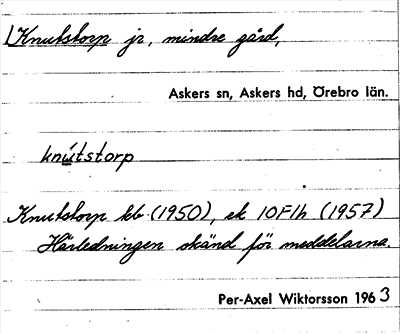 Knutstorp jr, mindre gård,
Askers sn, Askers hd, Örebro län.
knútstorp
Knutstorp kb (1950), ek 10F1h (1957)
Härledningen okänd för meddelarna.
Per-Axel Wiktorsson 1963